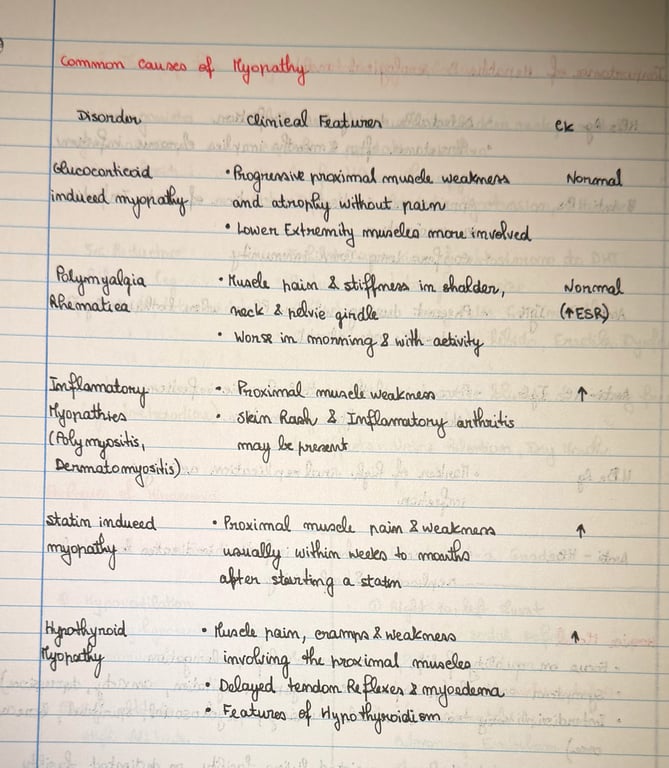 Common causes of Myopathy
Disorder Clinical Features CK
Glucocorticoid • Progressive proximal muscle weakness Normal
induced myopathy and atrophy without pain
• Lower Extremity muscles more involved
Polymyalgia • Muscle pain & stiffness in sholder, Normal
Rhematica neck & pelvic girdle (↑ESR)
• Worse in morning & with activity
Inflamatory • Proximal muscle weakness ↑
Myopathies • Skin Rash & Inflamatory arthritis
(Polymyositis, may be present
Dermatomyositis)
Statin induced • Proximal muscle pain & weakness ↑
myopathy usually within weeks to months
after starting a statin
Hypothyroid • Muscle pain, cramps & weakness ↑
Myopathy involving the proximal muscles
• Delayed tendon Reflexes & myoedema
• Features of Hypothyroidism